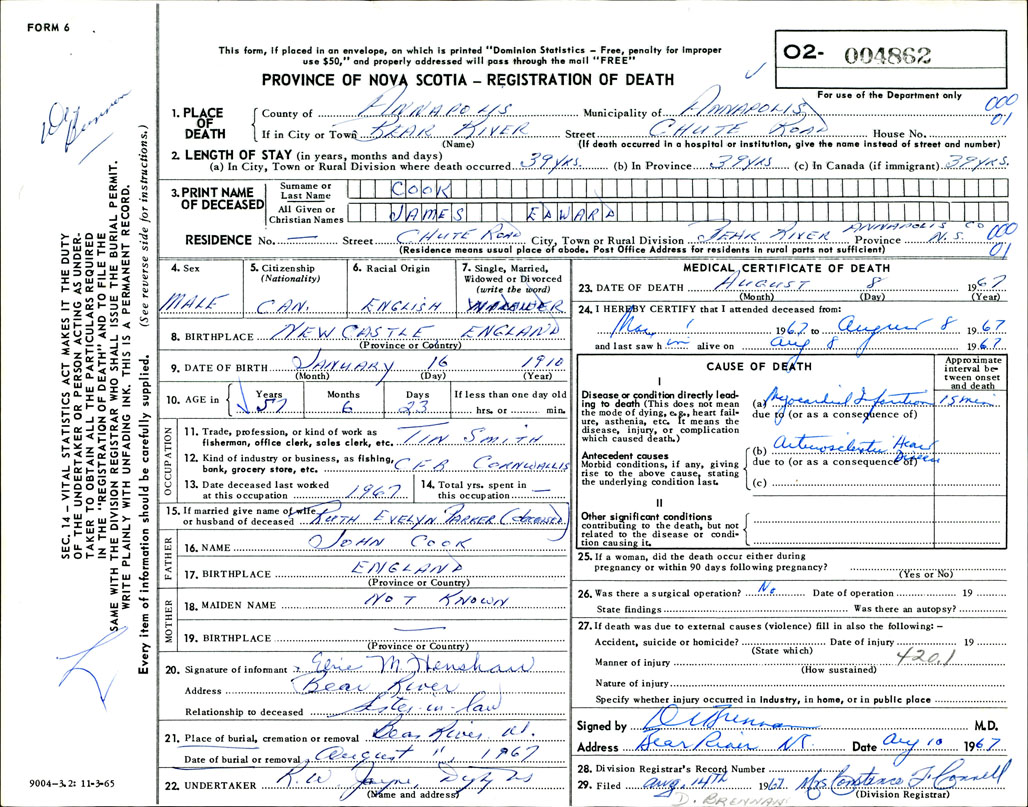 FORM 6
This form, if placed in an envelope, on which is printed "Dominion Statistics – Free, penalty for improper
use $50," and properly addressed will pass through the mail "FREE"
PROVINCE OF NOVA SCOTIA – REGISTRATION OF DEATH
O2- 004862
For use of the Department only
000
01
1. PLACE OF DEATH County of ANNAPOLIS Municipality of ANNAPOLIS
If in City or Town BEAR RIVER Street CHUTE ROAD House No.
(Name) (If death occurred in a hospital or institution, give the name instead of street and number)
2. LENGTH OF STAY (in years, months and days)
(a) In City, Town or Rural Division where death occurred 39 yrs. (b) In Province 39 yrs (c) In Canada (if immigrant) 39 yrs.
3. PRINT NAME OF DECEASED
Surname or Last Name COOK
All Given or Christian Names JAMES EDWARD
RESIDENCE No. — Street CHUTE ROAD City, Town or Rural Division BEAR RIVER ANNAPOLIS CO Province N.S. 000
01
(Residence means usual place of abode. Post Office Address for residents in rural parts not sufficient)
4. Sex
MALE
5. Citizenship
(Nationality)
CAN.
6. Racial Origin
ENGLISH
7. Single, Married,
Widowed or Divorced
(write the word)
WIDOWER
8. BIRTHPLACE NEW CASTLE ENGLAND
(Province or Country)
9. DATE OF BIRTH JANUARY 16 1910
(Month) (Day) (Year)
10. AGE in Years Months Days If less than one day old
57 6 23 hrs. or min.
OCCUPATION
11. Trade, profession, or kind of work as
fisherman, office clerk, sales clerk, etc. TIN SMITH
12. Kind of industry or business, as fishing,
bank, grocery store, etc. CFB CORNWALLIS
13. Date deceased last worked
at this occupation 1967
14. Total yrs. spent in
this occupation —
15. If married give name of wife
or husband of deceased RUTH EVELYN PARKER (deceased)
FATHER
16. NAME JOHN COOK
17. BIRTHPLACE ENGLAND
(Province or Country)
MOTHER
18. MAIDEN NAME NOT KNOWN
19. BIRTHPLACE —
(Province or Country)
20. Signature of informant Elsie M. Henshaw
Address Bear River
Relationship to deceased Sister-in-law
21. Place of burial, cremation or removal Bear River
Date of burial or removal August 11, 1967
22. UNDERTAKER R.W. Jayne, Digby NS
(Name and address)
MEDICAL CERTIFICATE OF DEATH
23. DATE OF DEATH AUGUST 8 1967
(Month) (Day) (Year)
24. I HEREBY CERTIFY that I attended deceased from:
May 1 1967 to August 8 1967
and last saw him alive on Aug 8 1967
CAUSE OF DEATH
Approximate
interval be-
tween onset
and death
I
Disease or condition directly lead-
ing to death (This does not mean
the mode of dying, e.g., heart fail-
ure, asthenia, etc. It means the
disease, injury, or complication
which caused death.)
(a) Myocardial Infarction 15 min
due to (or as a consequence of)
Antecedent causes
Morbid conditions, if any, giving
rise to the above cause, stating
the underlying condition last.
(b) Arteriosclerotic Heart Disease
due to (or as a consequence of)
(c)
II
Other significant conditions
contributing to the death, but not
related to the disease or condi-
tion causing it.
25. If a woman, did the death occur either during
pregnancy or within 90 days following pregnancy?
(Yes or No)
26. Was there a surgical operation? No Date of operation 19
State findings Was there an autopsy?
27. If death was due to external causes (violence) fill in also the following: –
Accident, suicide or homicide? Date of injury 19
(State which)
Manner of injury 420.1
(How sustained)
Nature of injury
Specify whether injury occurred in industry, in home, or in public place
Signed by D Brennan M.D.
Address Bear River N.S. Date Aug 10 1967
28. Division Registrar's Record Number
29. Filed Aug. 14th 1967. Mrs Constance Connell
(Division Registrar)
D. BRENNAN
SEC. 14 – VITAL STATISTICS ACT MAKES IT THE DUTY
OF THE UNDERTAKER OR PERSON ACTING AS UNDER-
TAKER TO OBTAIN ALL THE PARTICULARS REQUIRED
IN THE "REGISTRATION OF DEATH" AND TO FILE THE
SAME WITH THE DIVISION REGISTRAR WHO SHALL ISSUE THE BURIAL PERMIT.
WRITE PLAINLY WITH UNFADING INK. THIS IS A PERMANENT RECORD.
Every item of information should be carefully supplied. (See reverse side for instructions.)
9004–3.2: 11-3-65